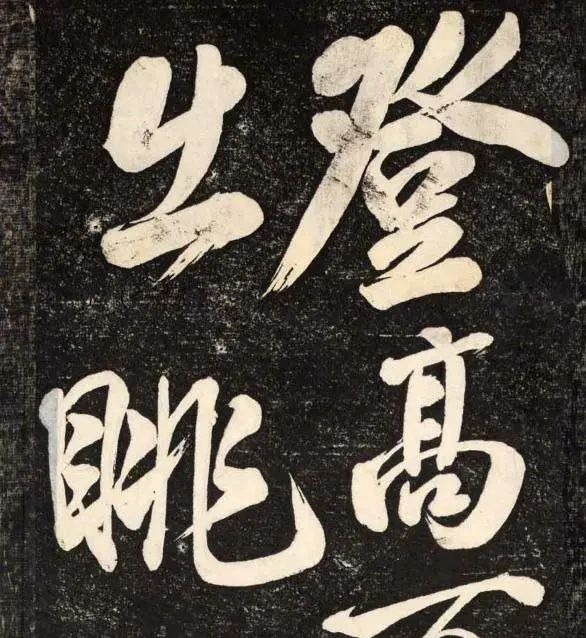 登高
出眺